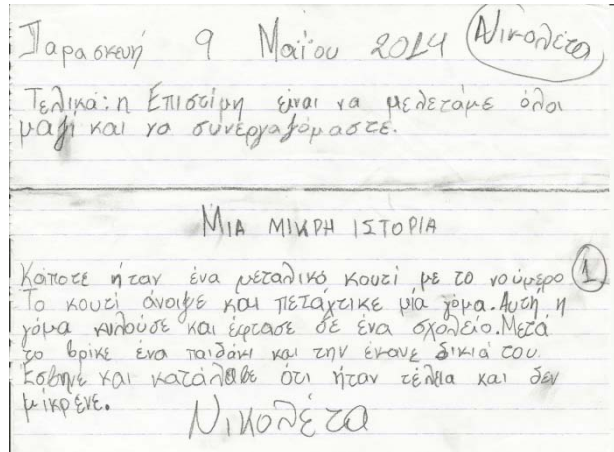 Παρασκευή 9 Μαΐου 2014 Νικολέτα
Τελικά: η Επιστίμη είναι να μελετάμε όλοι
μαζί και να συνεργαζόμαστε.
ΜΙΑ ΜΙΚΡΗ ΙΣΤΟΡΙΑ
Κάποτε ήταν ένα μεταλικό κουτί με το νούμερο 1
Το κουτί άνοιψε και πετάχτικε μία γόμα. Αυτή η
γόμα κυλούσε και έφτασε σε ένα σχολείο. Μετά
το βρίκε ένα παιδάκι και την έκανε δικιά του.
Έσβηνε και κατάλαβε ότι ήταν τέλια και δεν
μίκρενε.
Νικολέτα